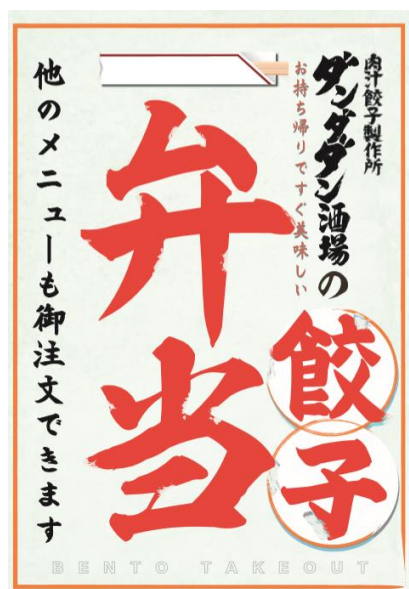 肉汁餃子製作所
ダンダダン酒場の
餃子
お持ち帰りですぐ美味しい
弁当
他のメニューも御注文できます
BENTO TAKEOUT